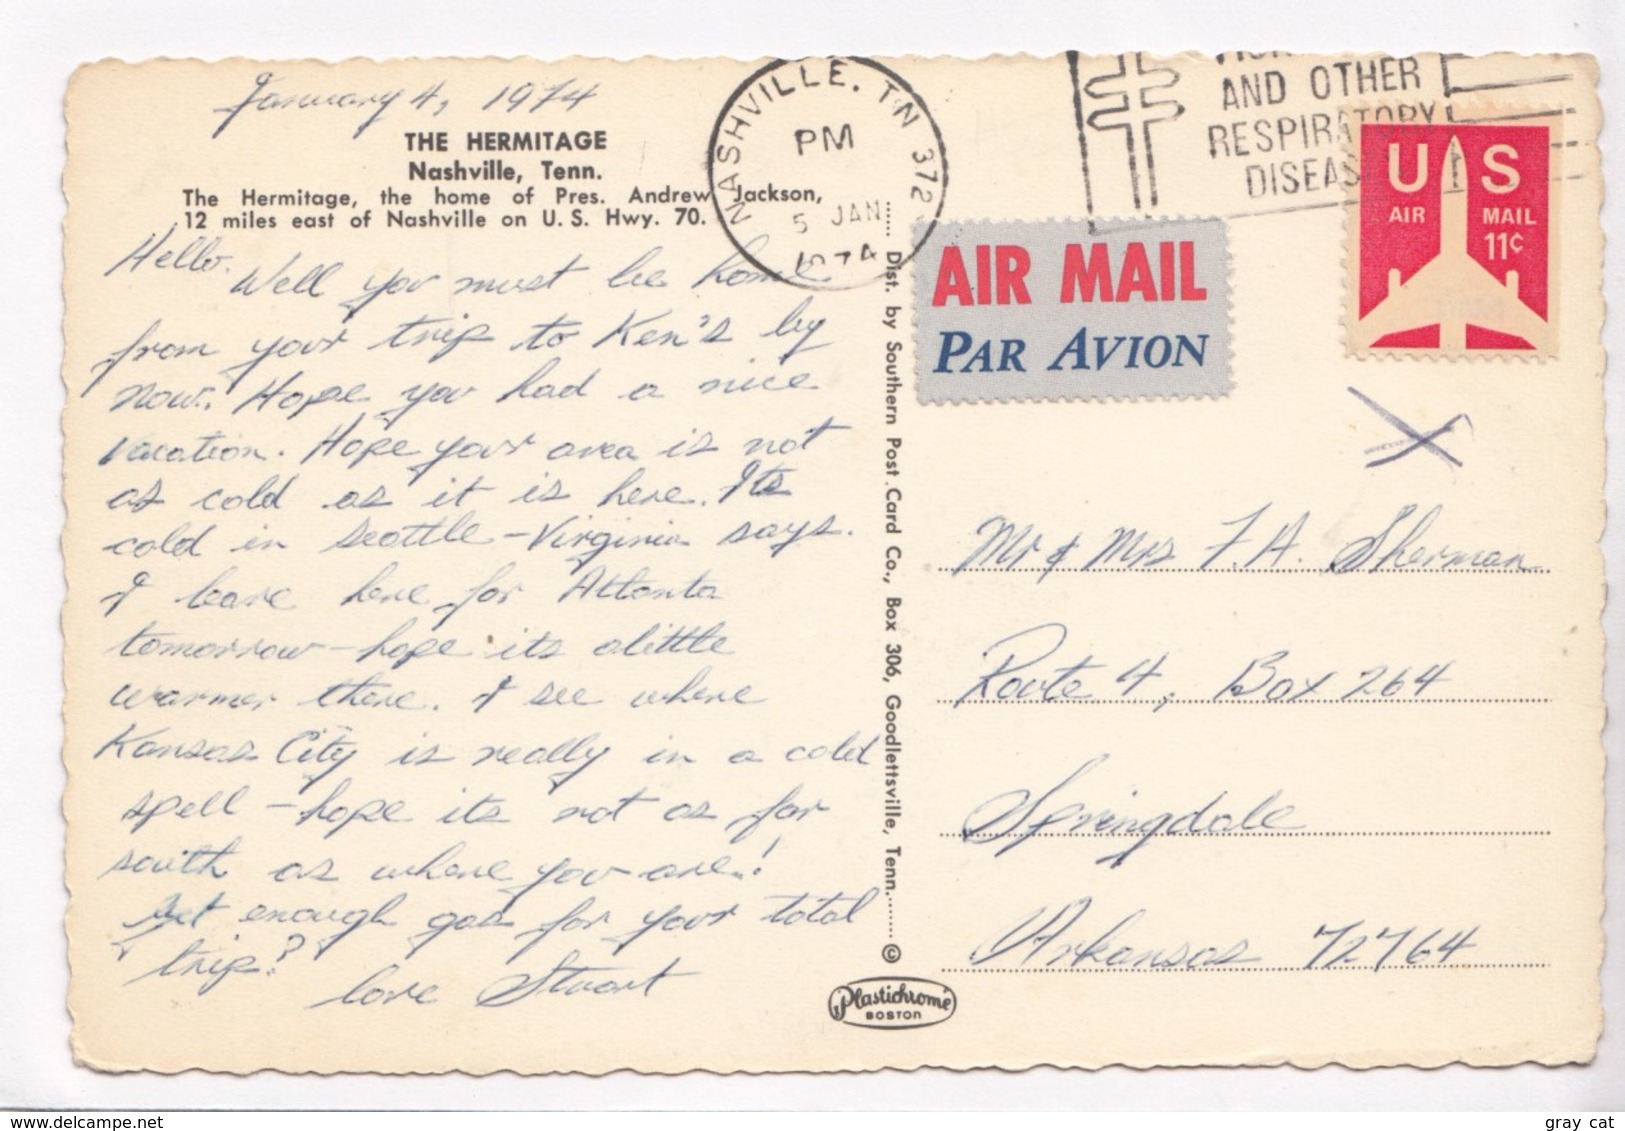 January 4, 1974
THE HERMITAGE
Nashville, Tenn.
The Hermitage, the home of Pres. Andrew Jackson,
12 miles east of Nashville on U. S. Hwy. 70.
Hello.
Well you must be home
from your trip to Ken's by
now. Hope you had a nice
vacation. Hope your area is not
as cold as it is here. Its
cold in Seattle - Virginia says.
I leave here for Atlanta
tomorrow - hope its a little
warmer there. I see where
Kansas City is really in a cold
spell - hope its not as far
south as where you are!
Get enough gas for your total
trip?
Love Stuart
Dist. by Southern Post Card Co., Box 306, Goodlettsville, Tenn. ©
Plastichrome
BOSTON
NASHVILLE, TN 372
PM
5 JAN
1974
AND OTHER
RESPIRATORY
DISEAS
US
AIR MAIL
11¢
AIR MAIL
PAR AVION
Mr & Mrs F. A. Sherman
Route 4, Box 264
Springdale
Arkansas 72764
gray cat